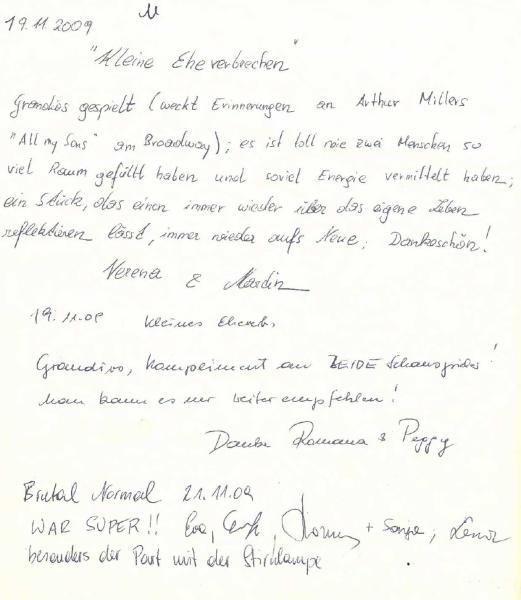 19.11.2009
"Kleine Eheverbrechen"
Grandios gespielt (weckt Erinnerungen an Arthur Millers
"All my Sons" am Broadway); es ist toll wie zwei Menschen so
viel Raum gefüllt haben und soviel Energie vermittelt haben;
ein Stück, das einen immer wieder über das eigene Leben
reflektieren lässt, immer wieder aufs Neue; Dankeschön!
Verena & Martin
19.11.09 kleines
Grandios, Kompliment an BEIDE Schauspieler!
Man kann es nur weiterempfehlen!
Danke Romana & Peggy
Brutal Normal 21.11.09
WAR SUPER!! Eva, + Sonja,
besonders der Part mit der Stirnlampe